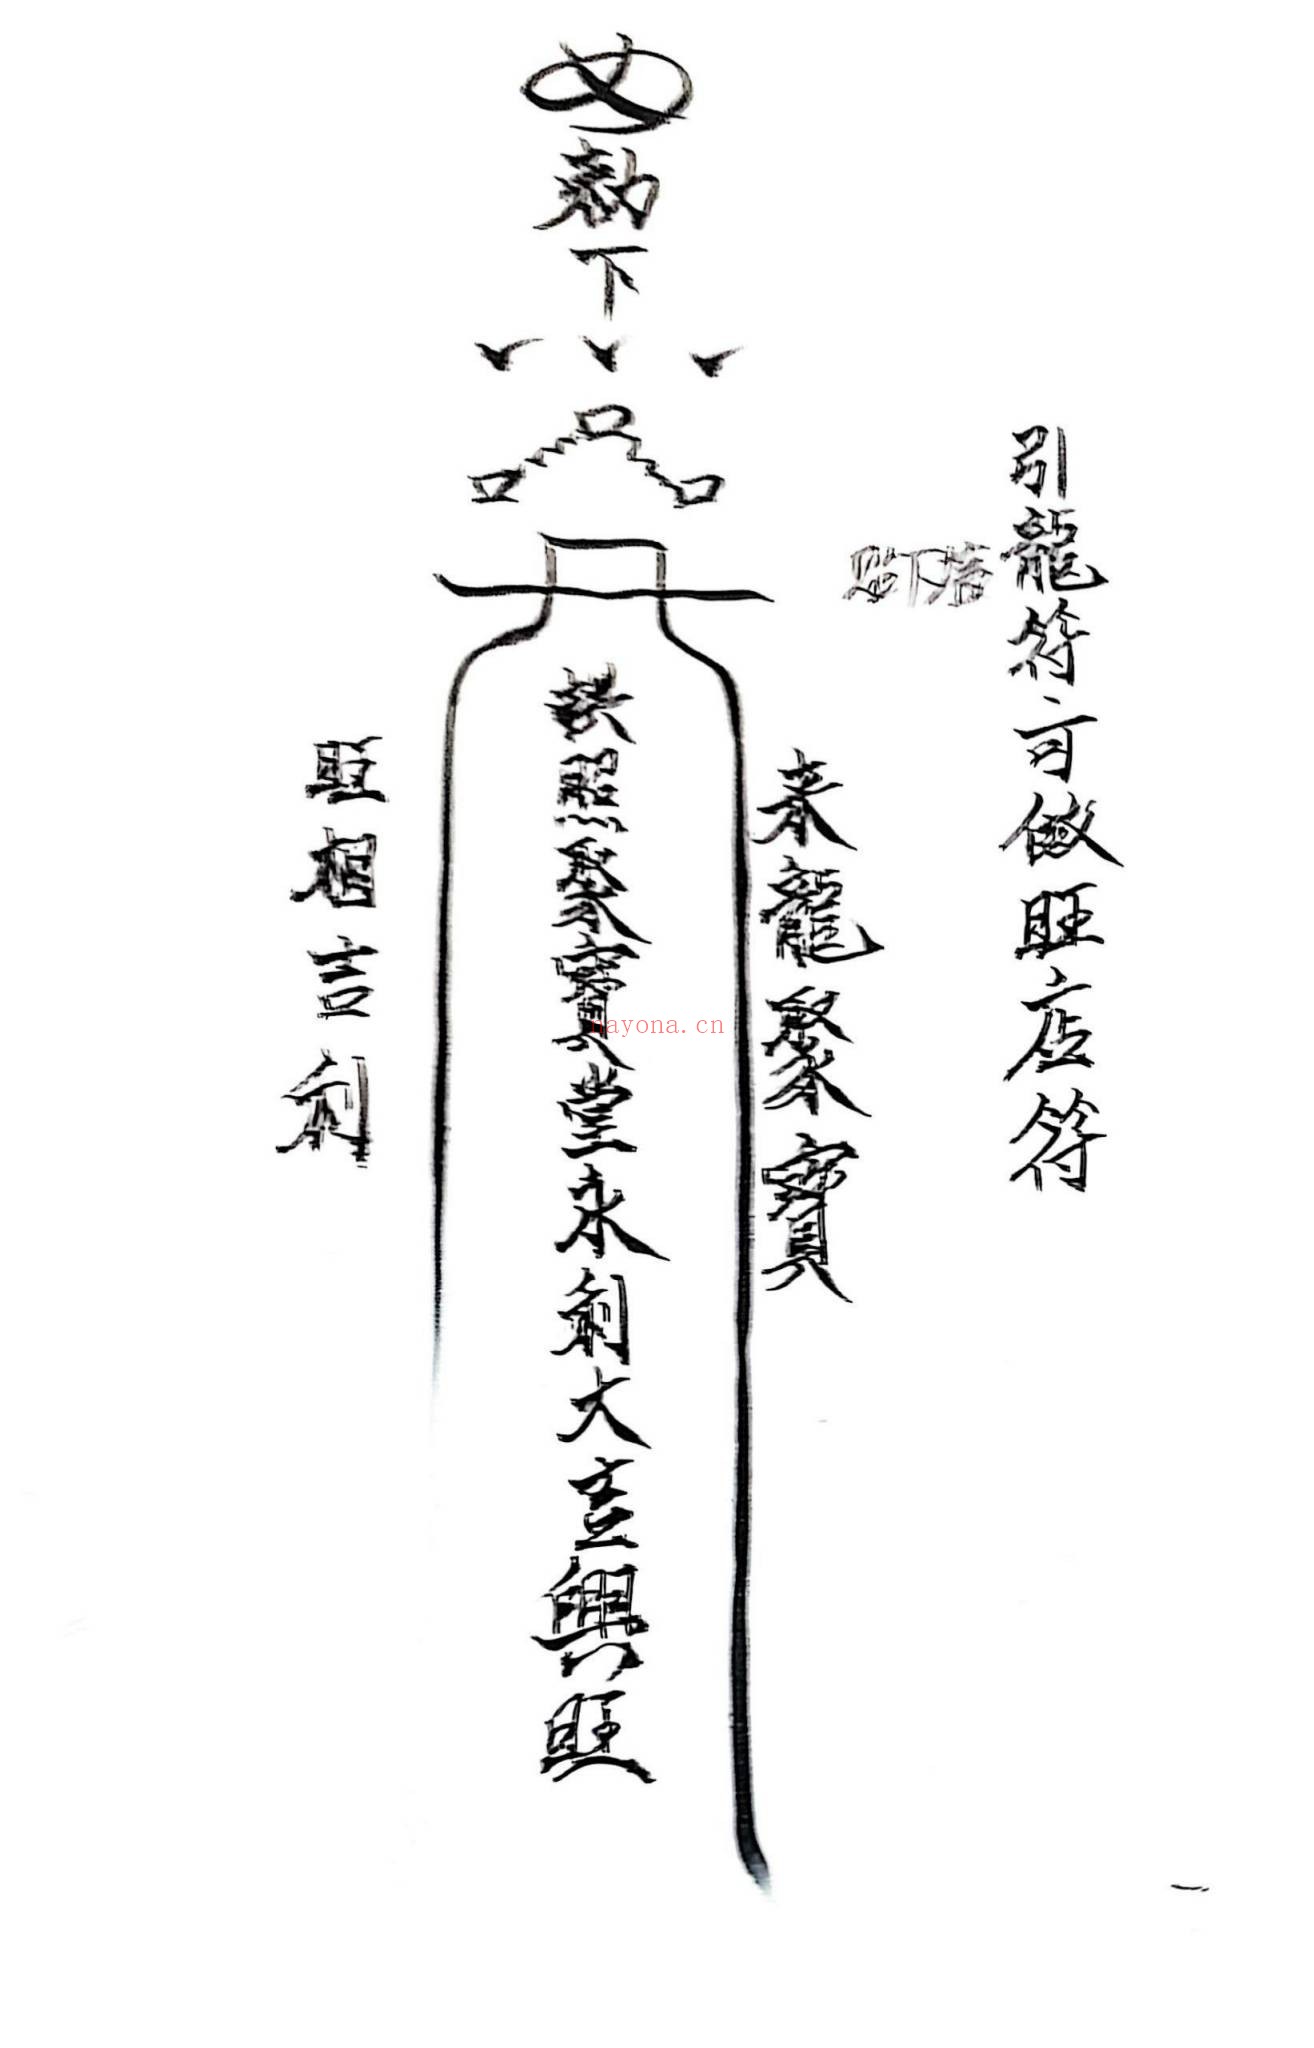 引龍符可做旺店符
貼下塔
敕
下
來龍聚寶
拱照聚寶堂永利大主興旺
旺相吉利
nayona.cn